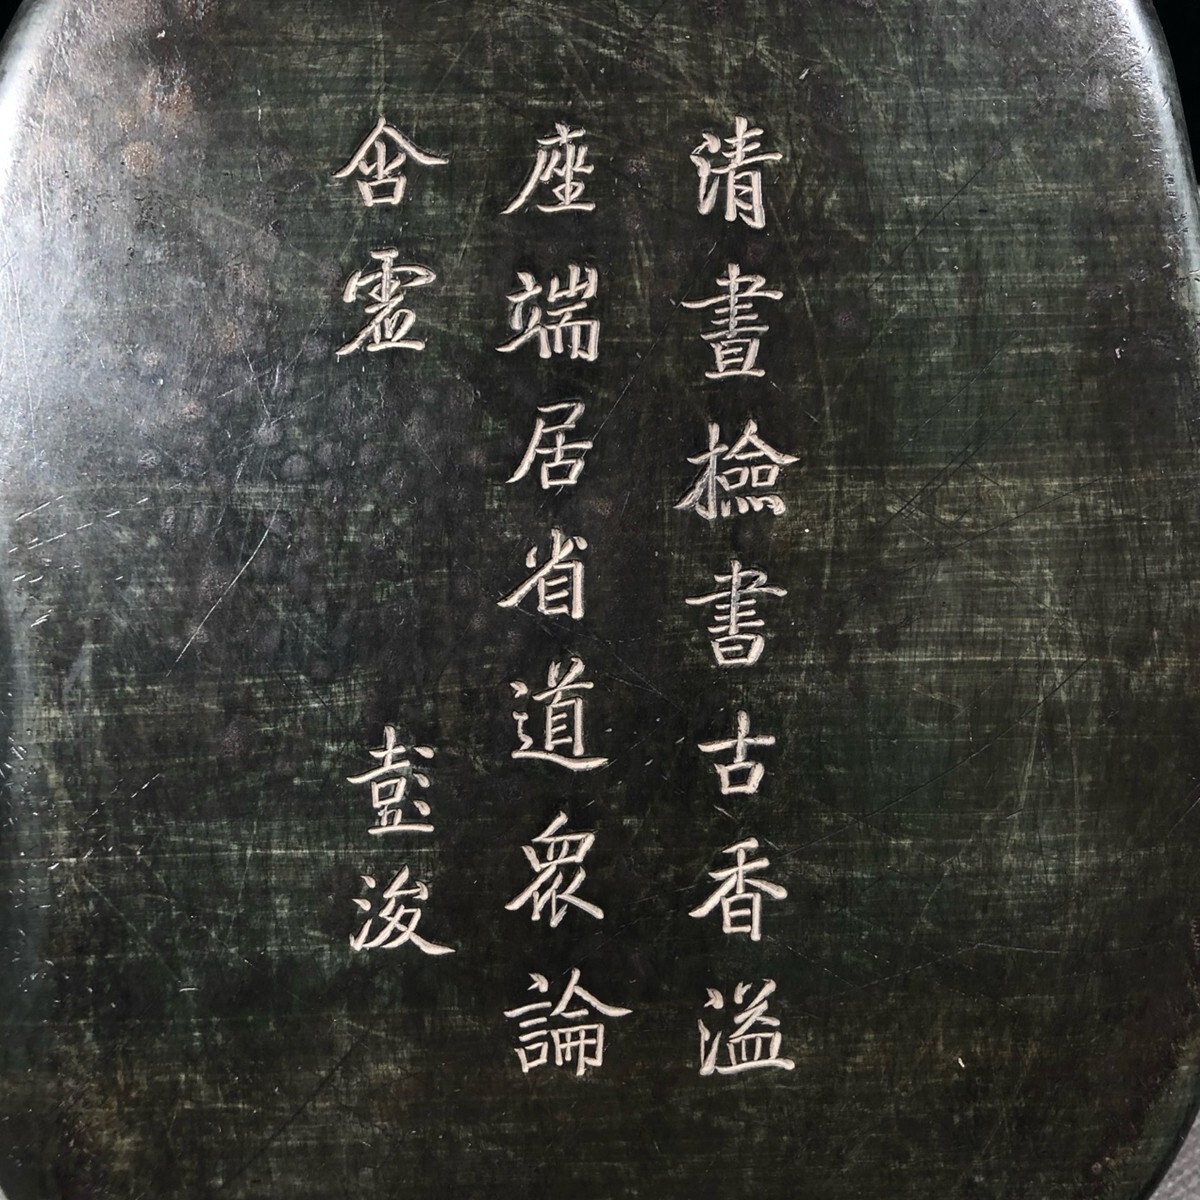 清晝檢書古香溢
座端居省道眾論
含虛 彭浚